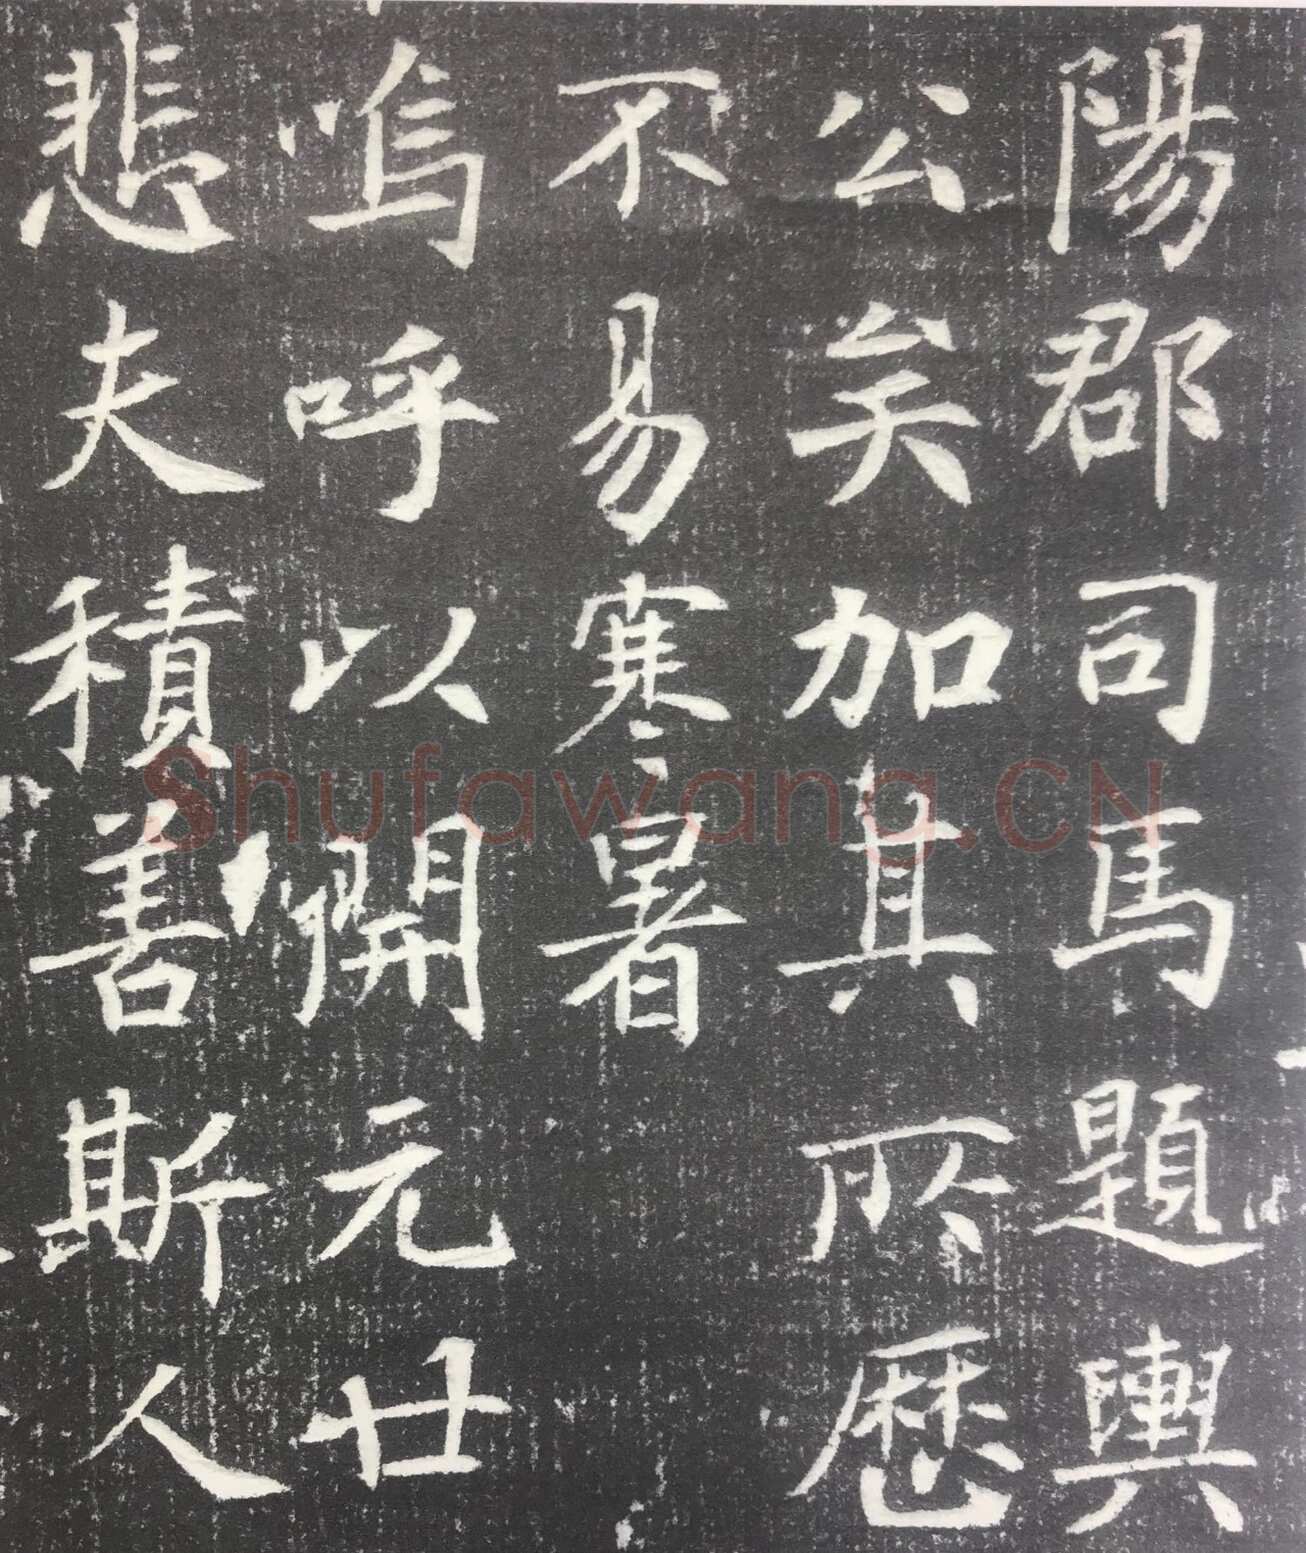 陽郡司馬題輿
公矣加其所歷
不易寒暑
嗚呼以開元廿
悲夫積善斯人
Shufawang.CN